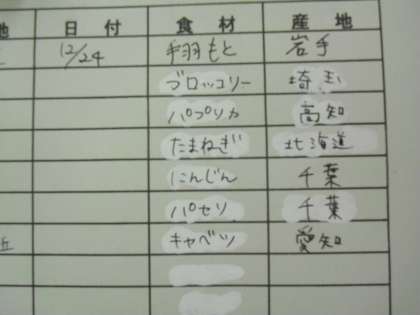 日付 食材 産地
12/24 手羽もと 岩手
ブロッコリー 埼玉
パプリカ 高知
たまねぎ 北海道
にんじん 千葉
パセリ 千葉
キャベツ 愛知